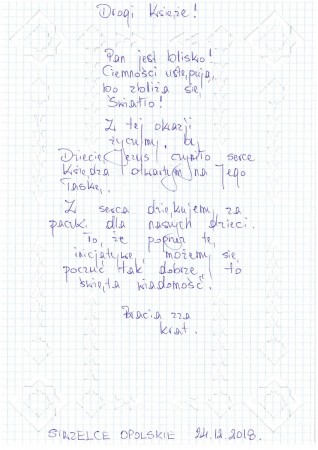 Drogi Księże!
Pan jest blisko!
Ciemności ustępują,
bo zbliża się
Światło!
Z tej okazji
życzymy, by
Dziecię Jezus czyniło serce
Księdza otwartym na Jego
Łaskę.
Z serca dziękujemy za
paczki dla naszych dzieci.
To, że poprzez tę
inicjatywę, możemy się
poczuć tak dobrze, to
święta wiadomość.
Bracia zza
krat.
STRZELCE OPOLSKIE 24.12.2018.